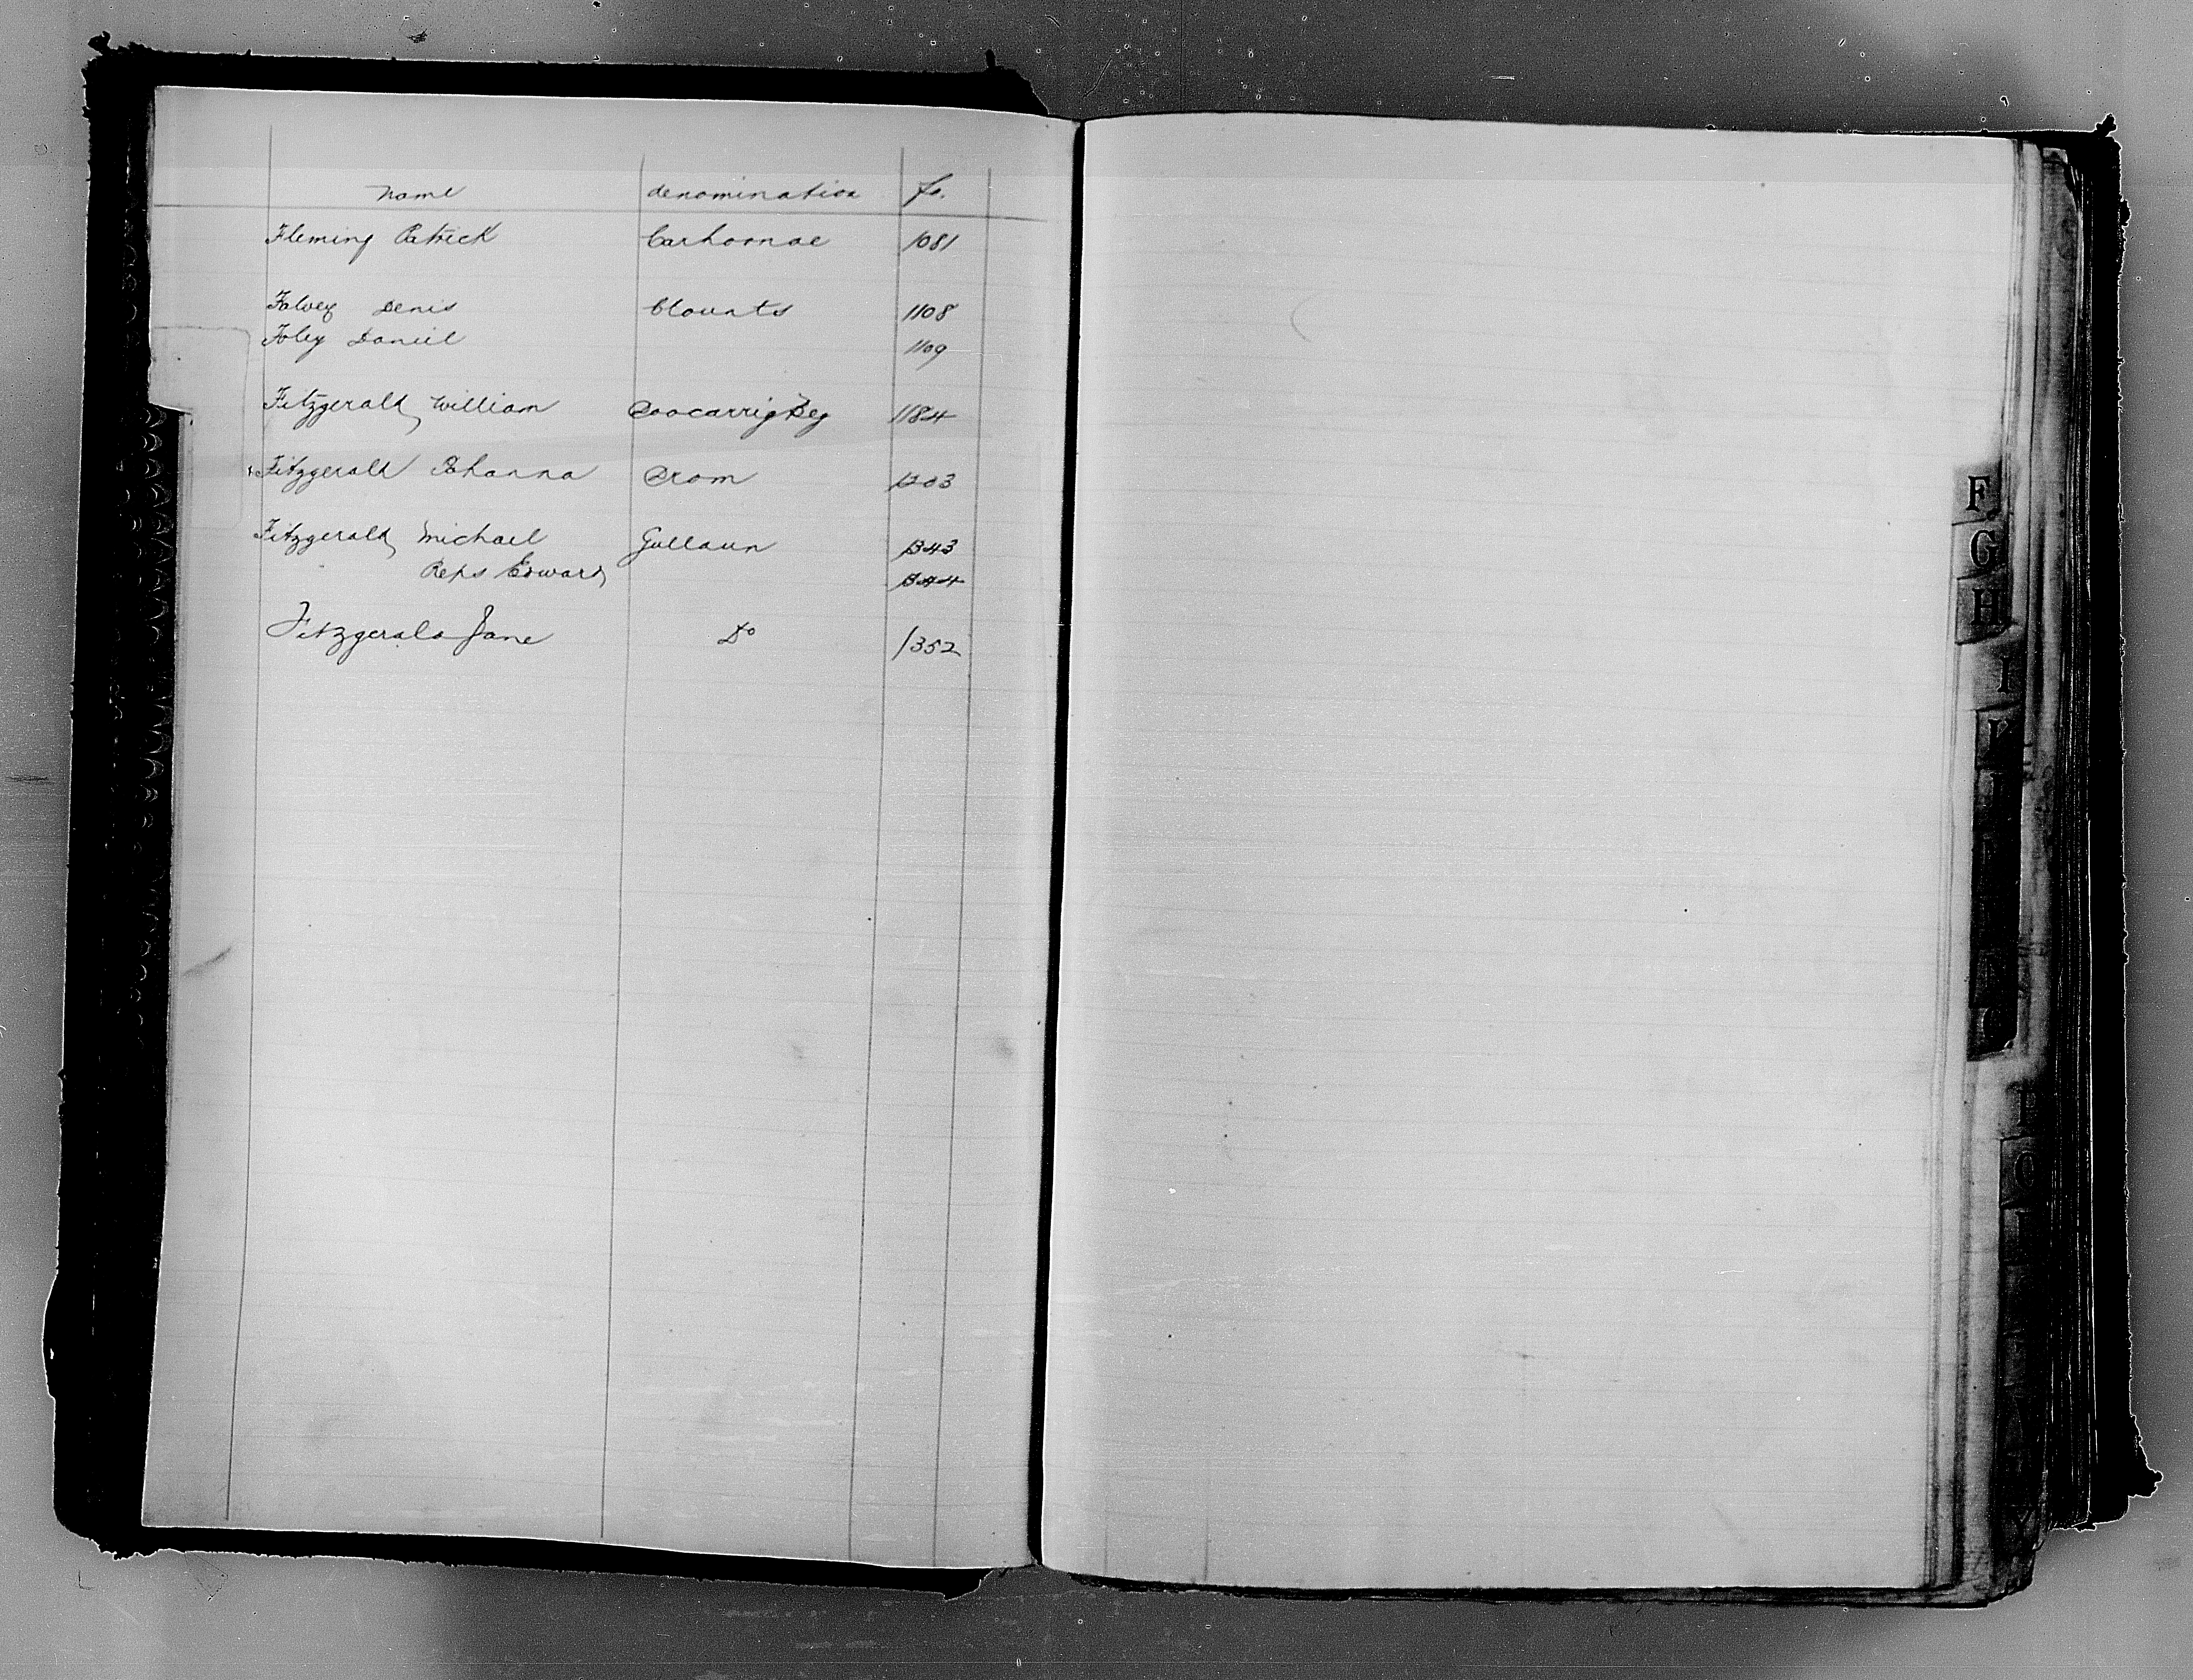 Name denomination fo.
Fleming Patrick Carhoonae 1081
Falvey Denis Clounts 1108
Foley Daniel 1109
Fitzgerald William Doocarrig Beg 1184
Fitzgerald Johanna Drom 1203
Fitzgerald Michael Gullaun 1343
Reps Edward 1344
Fitzgerald Jane Do 1352
F
G
H
I